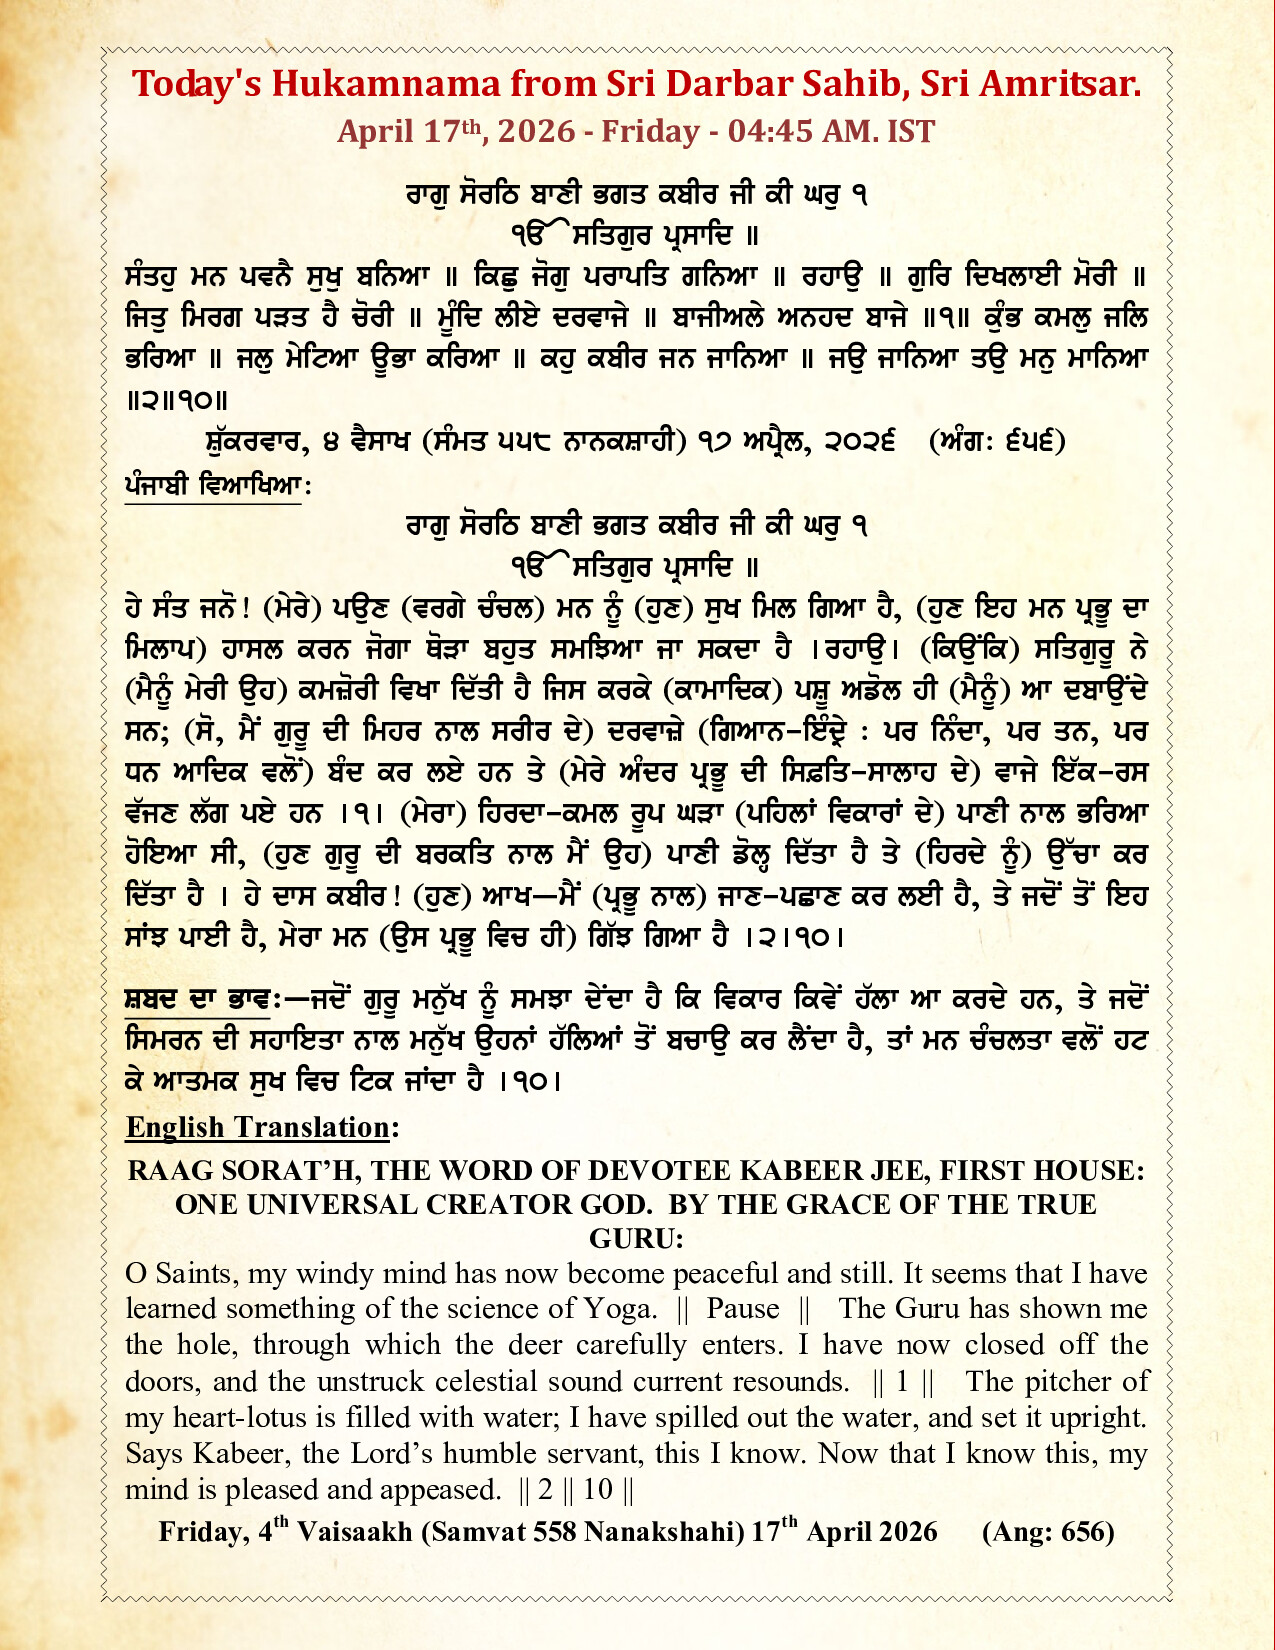 Today's Hukamnama from Sri Darbar Sahib, Sri Amritsar.
April 17th, 2026 - Friday - 04:45 AM. IST
ਰਾਗੁ ਸੋਰਠਿ ਬਾਣੀ ਭਗਤ ਕਬੀਰ ਜੀ ਕੀ ਘਰੁ ੧
ੴ ਸਤਿਗੁਰ ਪ੍ਰਸਾਦਿ ॥
ਸੰਤਹੁ ਮਨ ਪਵਨੈ ਸੁਖੁ ਬਨਿਆ ॥ ਕਿਛੁ ਜੋਗੁ ਪਰਾਪਤਿ ਗਨਿਆ ॥ ਰਹਾਉ ॥ ਗੁਰਿ ਦਿਖਲਾਈ ਮੋਰੀ ॥
ਜਿਤੁ ਮਿਰਗ ਪੜਤ ਹੈ ਚੋਰੀ ॥ ਮੂੰਦਿ ਲੀਏ ਦਰਵਾਜੇ ॥ ਬਾਜੀਅਲੇ ਅਨਹਦ ਬਾਜੇ ॥੧॥ ਕੁੰਭ ਕਮਲੁ ਜਲਿ
ਭਰਿਆ ॥ ਜਲੁ ਮੇਟਿਆ ਊਭਾ ਕਰਿਆ ॥ ਕਹੁ ਕਬੀਰ ਜਨ ਜਾਨਿਆ ॥ ਜਉ ਜਾਨਿਆ ਤਉ ਮਨੁ ਮਾਨਿਆ
॥੨॥੧੦॥
ਸ਼ੁੱਕਰਵਾਰ, ੪ ਵੈਸਾਖ (ਸੰਮਤ ੫੫੮ ਨਾਨਕਸ਼ਾਹੀ) ੧੭ ਅਪ੍ਰੈਲ, ੨੦੨੬ (ਅੰਗ: ੬੫੬)
ਪੰਜਾਬੀ ਵਿਆਖਿਆ:
ਰਾਗੁ ਸੋਰਠਿ ਬਾਣੀ ਭਗਤ ਕਬੀਰ ਜੀ ਕੀ ਘਰੁ ੧
ੴ ਸਤਿਗੁਰ ਪ੍ਰਸਾਦਿ ॥
ਹੇ ਸੰਤ ਜਨੋ! (ਮੇਰੇ) ਪਉਣ (ਵਰਗੇ ਚੰਚਲ) ਮਨ ਨੂੰ (ਹੁਣ) ਸੁਖ ਮਿਲ ਗਿਆ ਹੈ, (ਹੁਣ ਇਹ ਮਨ ਪ੍ਰਭੂ ਦਾ
ਮਿਲਾਪ) ਹਾਸਲ ਕਰਨ ਜੋਗਾ ਥੋੜਾ ਬਹੁਤ ਸਮਝਿਆ ਜਾ ਸਕਦਾ ਹੈ ।ਰਹਾਉ। (ਕਿਉਂਕਿ) ਸਤਿਗੁਰੂ ਨੇ
(ਮੈਨੂੰ ਮੇਰੀ ਉਹ) ਕਮਜ਼ੋਰੀ ਵਿਖਾ ਦਿੱਤੀ ਹੈ ਜਿਸ ਕਰਕੇ (ਕਾਮਾਦਿਕ) ਪਸ਼ੂ ਅਡੋਲ ਹੀ (ਮੈਨੂੰ) ਆ ਦਬਾਉਂਦੇ
ਸਨ; (ਸੋ, ਮੈਂ ਗੁਰੂ ਦੀ ਮਿਹਰ ਨਾਲ ਸਰੀਰ ਦੇ) ਦਰਵਾਜ਼ੇ (ਗਿਆਨ-ਇੰਦ੍ਰੇ : ਪਰ ਨਿੰਦਾ, ਪਰ ਤਨ, ਪਰ
ਧਨ ਆਦਿਕ ਵਲੋਂ) ਬੰਦ ਕਰ ਲਏ ਹਨ ਤੇ (ਮੇਰੇ ਅੰਦਰ ਪ੍ਰਭੂ ਦੀ ਸਿਫ਼ਤਿ-ਸਾਲਾਹ ਦੇ) ਵਾਜੇ ਇੱਕ-ਰਸ
ਵੱਜਣ ਲੱਗ ਪਏ ਹਨ ।੧। (ਮੇਰਾ) ਹਿਰਦਾ-ਕਮਲ ਰੂਪ ਘੜਾ (ਪਹਿਲਾਂ ਵਿਕਾਰਾਂ ਦੇ) ਪਾਣੀ ਨਾਲ ਭਰਿਆ
ਹੋਇਆ ਸੀ, (ਹੁਣ ਗੁਰੂ ਦੀ ਬਰਕਤਿ ਨਾਲ ਮੈਂ ਉਹ) ਪਾਣੀ ਡੋਲ੍ਹ ਦਿੱਤਾ ਹੈ ਤੇ (ਹਿਰਦੇ ਨੂੰ) ਉੱਚਾ ਕਰ
ਦਿੱਤਾ ਹੈ । ਹੇ ਦਾਸ ਕਬੀਰ! (ਹੁਣ) ਆਖ—ਮੈਂ (ਪ੍ਰਭੂ ਨਾਲ) ਜਾਣ-ਪਛਾਣ ਕਰ ਲਈ ਹੈ, ਤੇ ਜਦੋਂ ਤੋਂ ਇਹ
ਸਾਂਝ ਪਾਈ ਹੈ, ਮੇਰਾ ਮਨ (ਉਸ ਪ੍ਰਭੂ ਵਿਚ ਹੀ) ਗਿੱਝ ਗਿਆ ਹੈ ।੨।੧੦।
ਸ਼ਬਦ ਦਾ ਭਾਵ:—ਜਦੋਂ ਗੁਰੂ ਮਨੁੱਖ ਨੂੰ ਸਮਝਾ ਦੇਂਦਾ ਹੈ ਕਿ ਵਿਕਾਰ ਕਿਵੇਂ ਹੱਲਾ ਆ ਕਰਦੇ ਹਨ, ਤੇ ਜਦੋਂ
ਸਿਮਰਨ ਦੀ ਸਹਾਇਤਾ ਨਾਲ ਮਨੁੱਖ ਉਹਨਾਂ ਹੱਲਿਆਂ ਤੋਂ ਬਚਾਉ ਕਰ ਲੈਂਦਾ ਹੈ, ਤਾਂ ਮਨ ਚੰਚਲਤਾ ਵਲੋਂ ਹਟ
ਕੇ ਆਤਮਕ ਸੁਖ ਵਿਚ ਟਿਕ ਜਾਂਦਾ ਹੈ ।੧੦।
English Translation:
RAAG SORAT’H, THE WORD OF DEVOTEE KABEER JEE, FIRST HOUSE:
ONE UNIVERSAL CREATOR GOD. BY THE GRACE OF THE TRUE
GURU:
O Saints, my windy mind has now become peaceful and still. It seems that I have
learned something of the science of Yoga. || Pause || The Guru has shown me
the hole, through which the deer carefully enters. I have now closed off the
doors, and the unstruck celestial sound current resounds. || 1 || The pitcher of
my heart-lotus is filled with water; I have spilled out the water, and set it upright.
Says Kabeer, the Lord’s humble servant, this I know. Now that I know this, my
mind is pleased and appeased. || 2 || 10 ||
Friday, 4th Vaisaakh (Samvat 558 Nanakshahi) 17th April 2026 (Ang: 656)